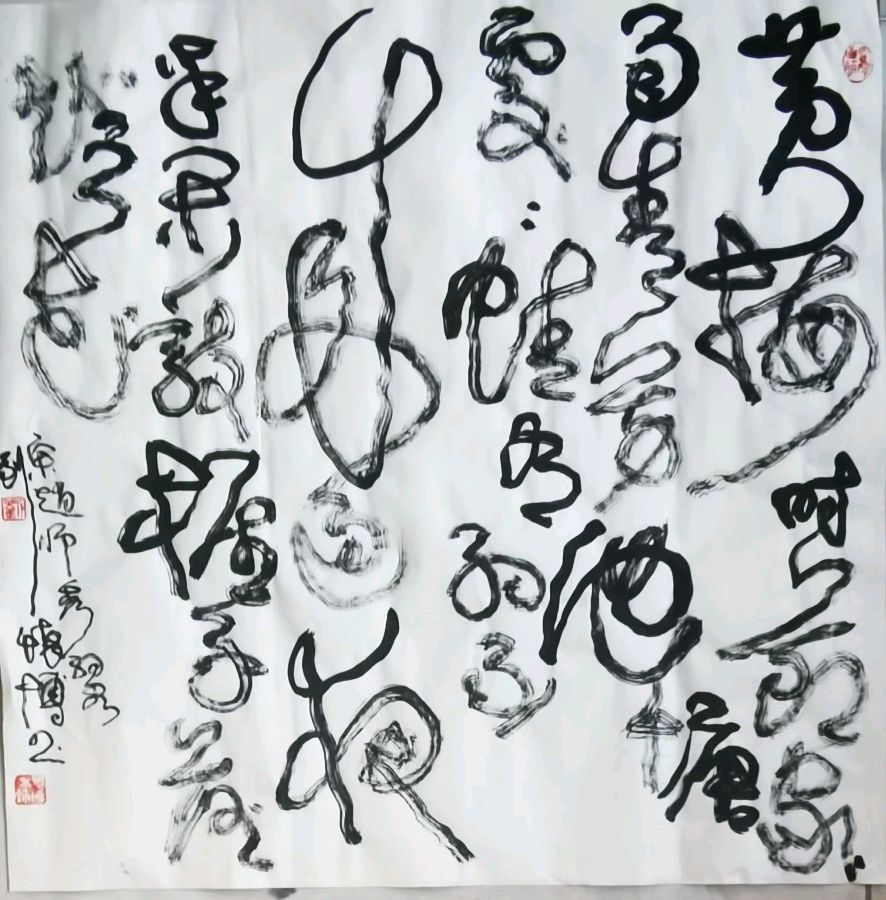 黄梅时节家々
雨青草池塘
处々蛙有约
不来过夜
半闲敲棋子落
灯花
宋趙師秀约客